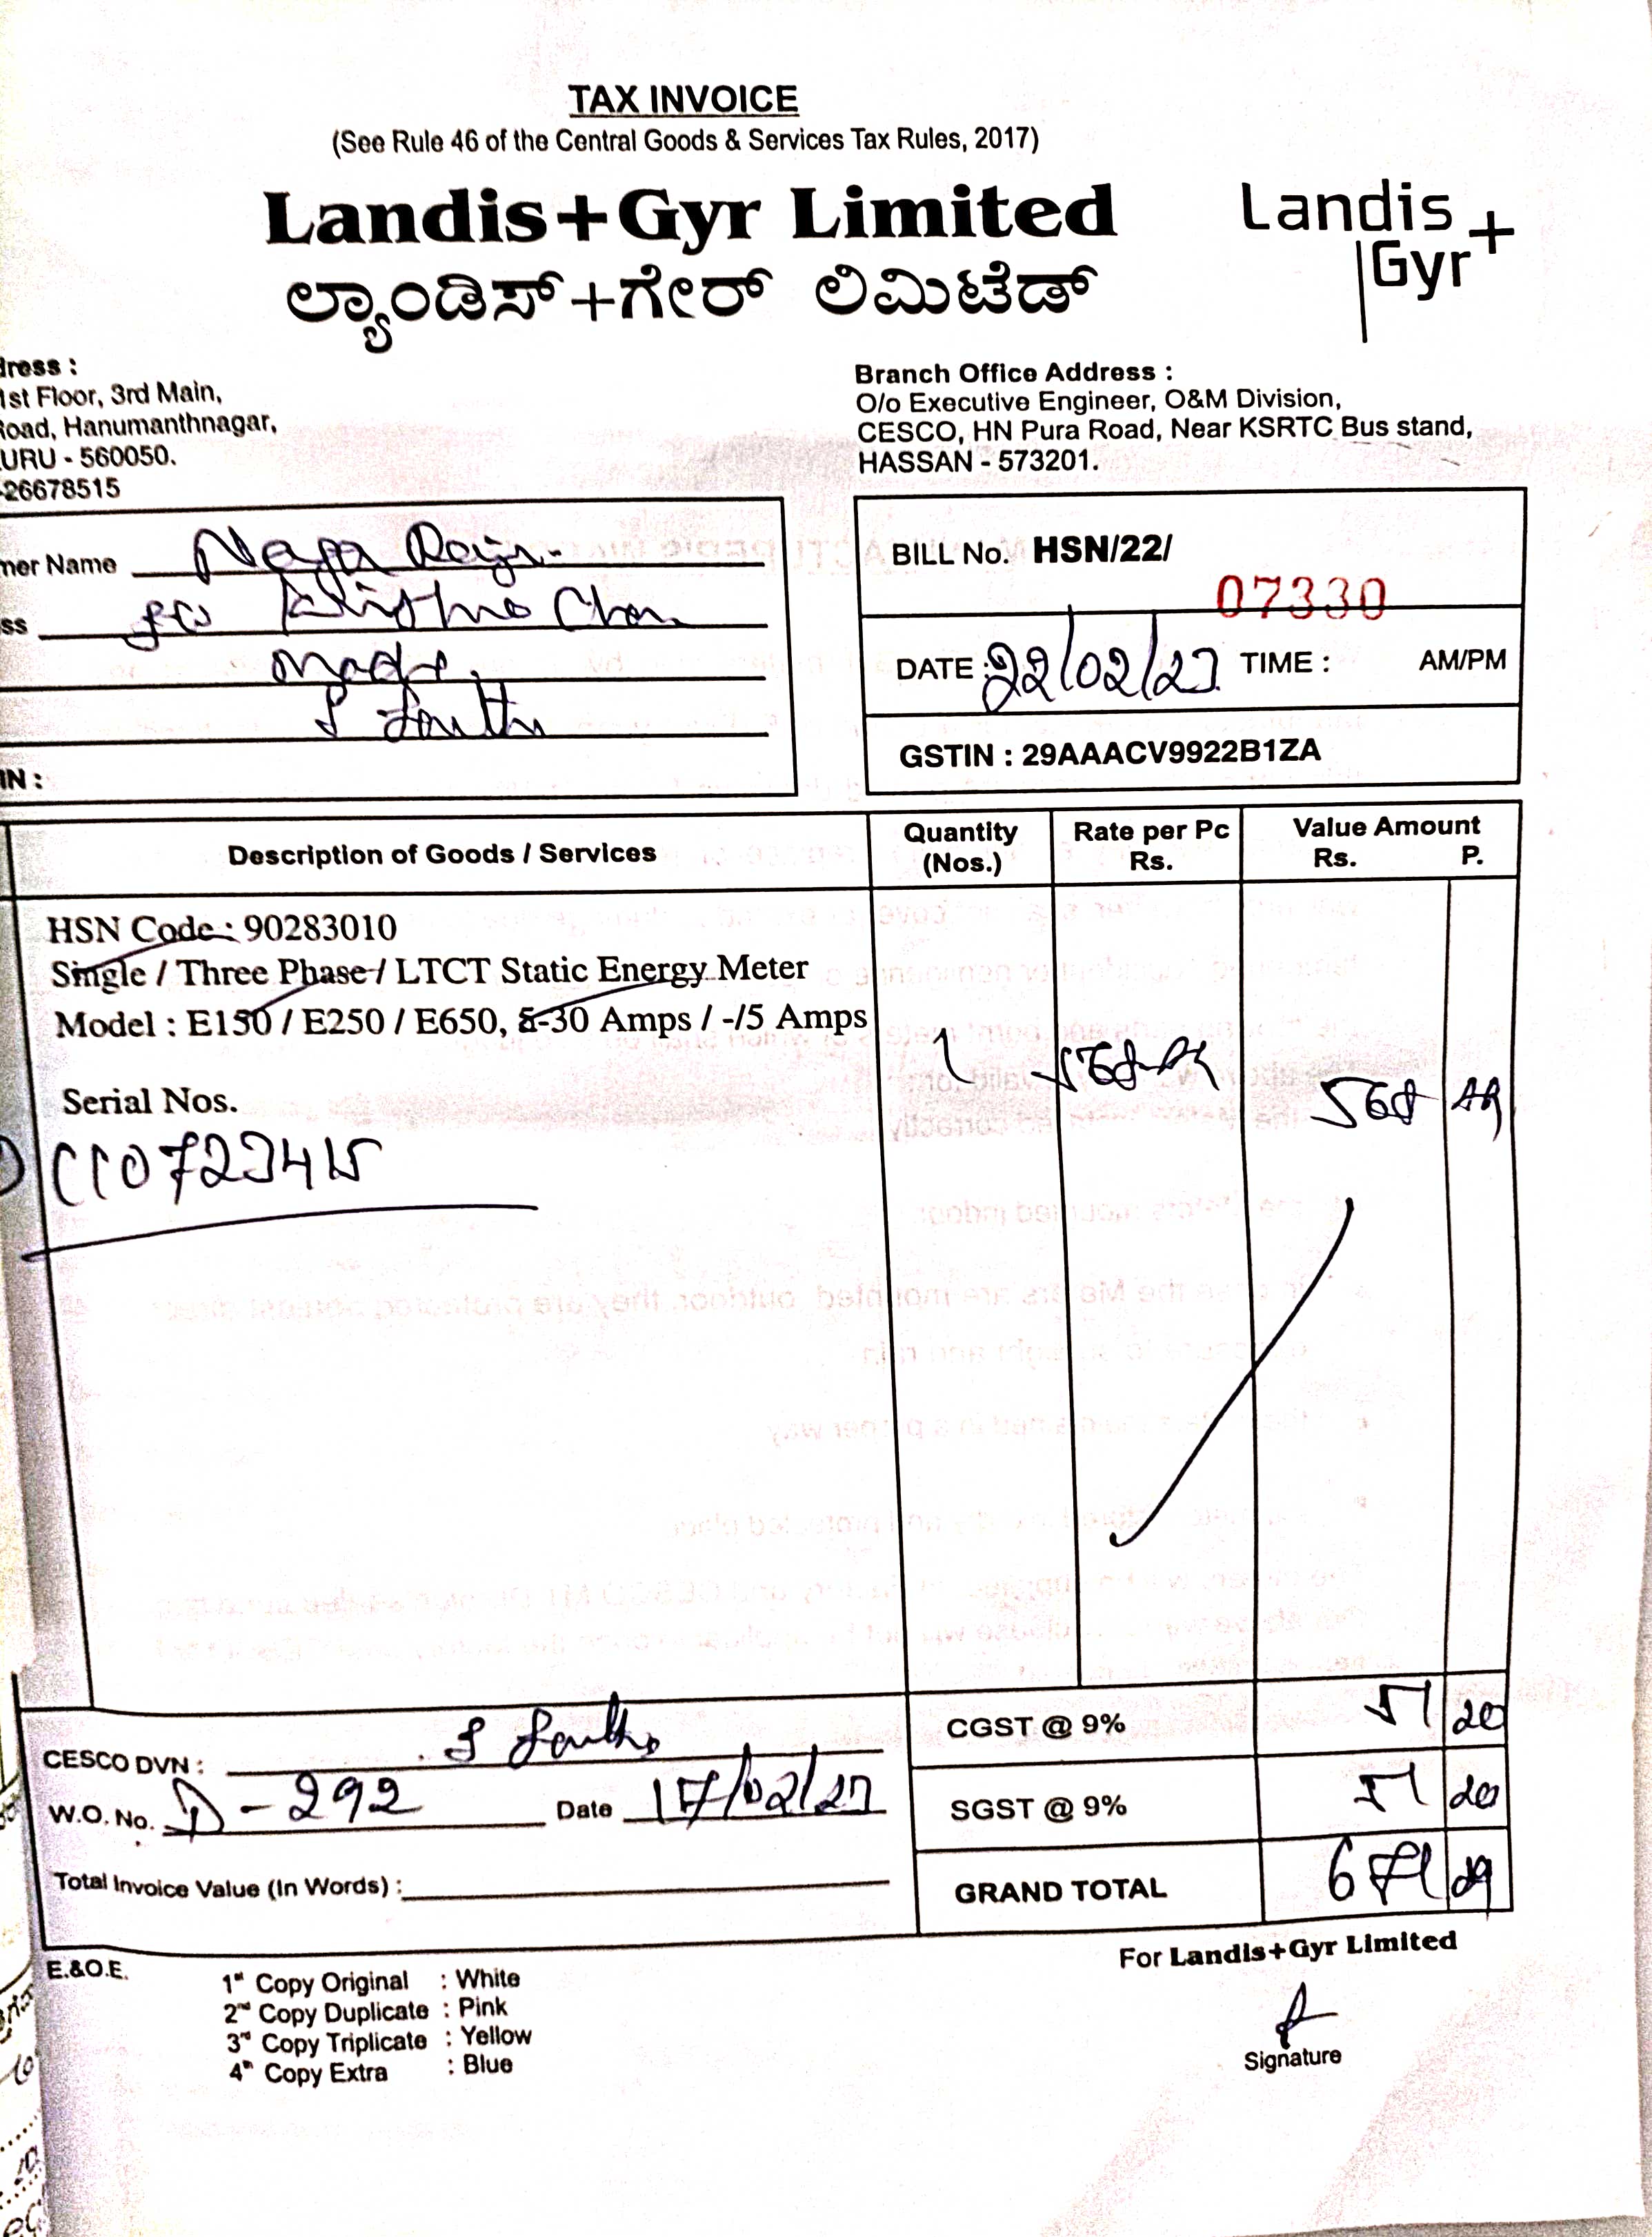 TAX INVOICE
(See Rule 46 of the Central Goods & Services Tax Rules, 2017)
Landis+Gyr Limited
ಲ್ಯಾಂಡಿಸ್+ಗೇರ್ ಲಿಮಿಟೆಡ್
Landis
Gyr+
dress :
1st Floor, 3rd Main,
Road, Hanumanthnagar,
URU - 560050.
-26678515
Branch Office Address :
O/o Executive Engineer, O&M Division,
CESCO, HN Pura Road, Near KSRTC Bus stand,
HASSAN - 573201.
mer Name Naga Raju
ss
IN :
BILL No. HSN/22/
07330
DATE : 22/02/23 TIME : AM/PM
GSTIN : 29AAACV9922B1ZA
Description of Goods / Services
Quantity (Nos.)
Rate per Pc Rs.
Value Amount Rs. P.
HSN Code : 90283010
Single / Three Phase / LTCT Static Energy Meter
Model : E150 / E250 / E650, 5-30 Amps / -/5 Amps
1 568
568
Serial Nos.
CESCO DVN :
W.O. No. D-292 Date 17/02/23
Total Invoice Value (In Words) :
CGST @ 9% 51 20
SGST @ 9% 51 20
GRAND TOTAL 671
E.&O.E.
1st Copy Original : White
2nd Copy Duplicate : Pink
3rd Copy Triplicate : Yellow
4th Copy Extra : Blue
For Landis+Gyr Limited
Signature